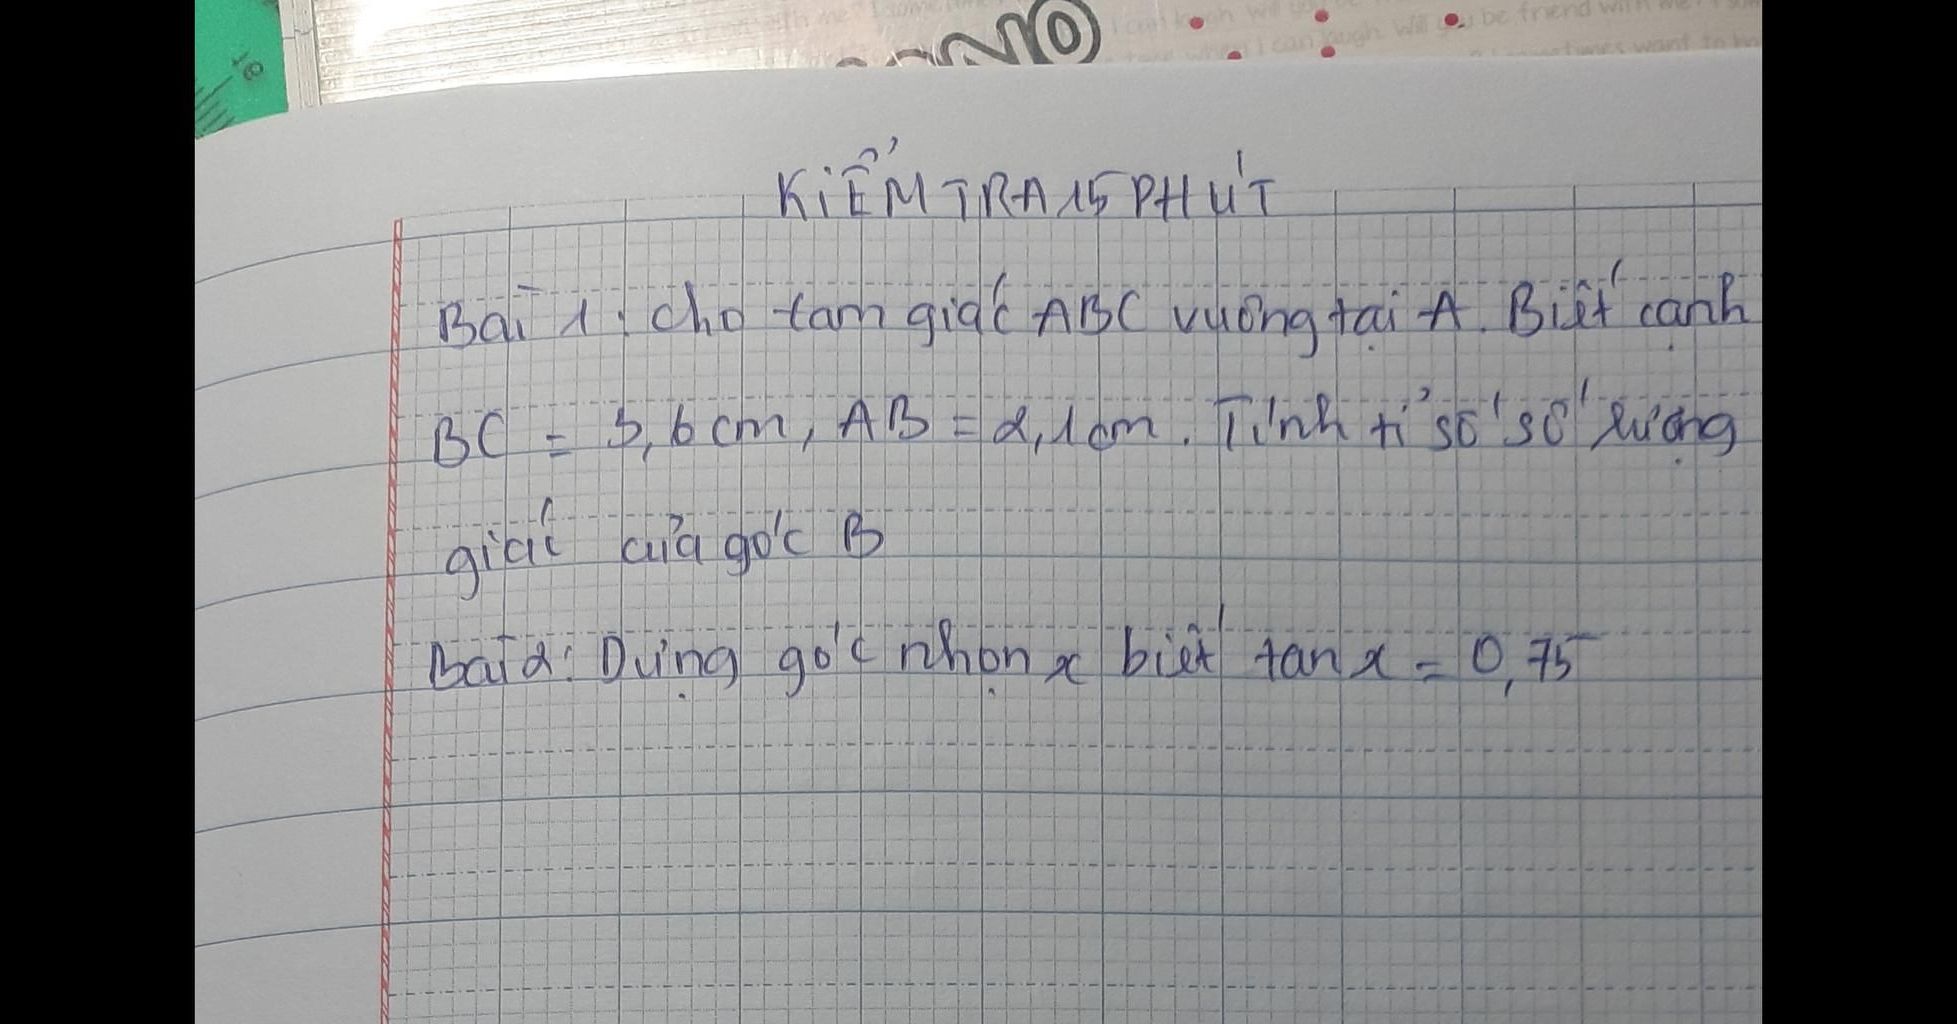 10
NO
KIỂM TRA 15 PHÚT
Bài 1: Cho tam giác ABC vuông tại A. Biết cạnh
BC = 3,6 cm, AB = 2,1 cm. Tính tỉ số số lượng
giác của góc B
Bài 2: Dựng góc nhọn x biết tan x = 0,75